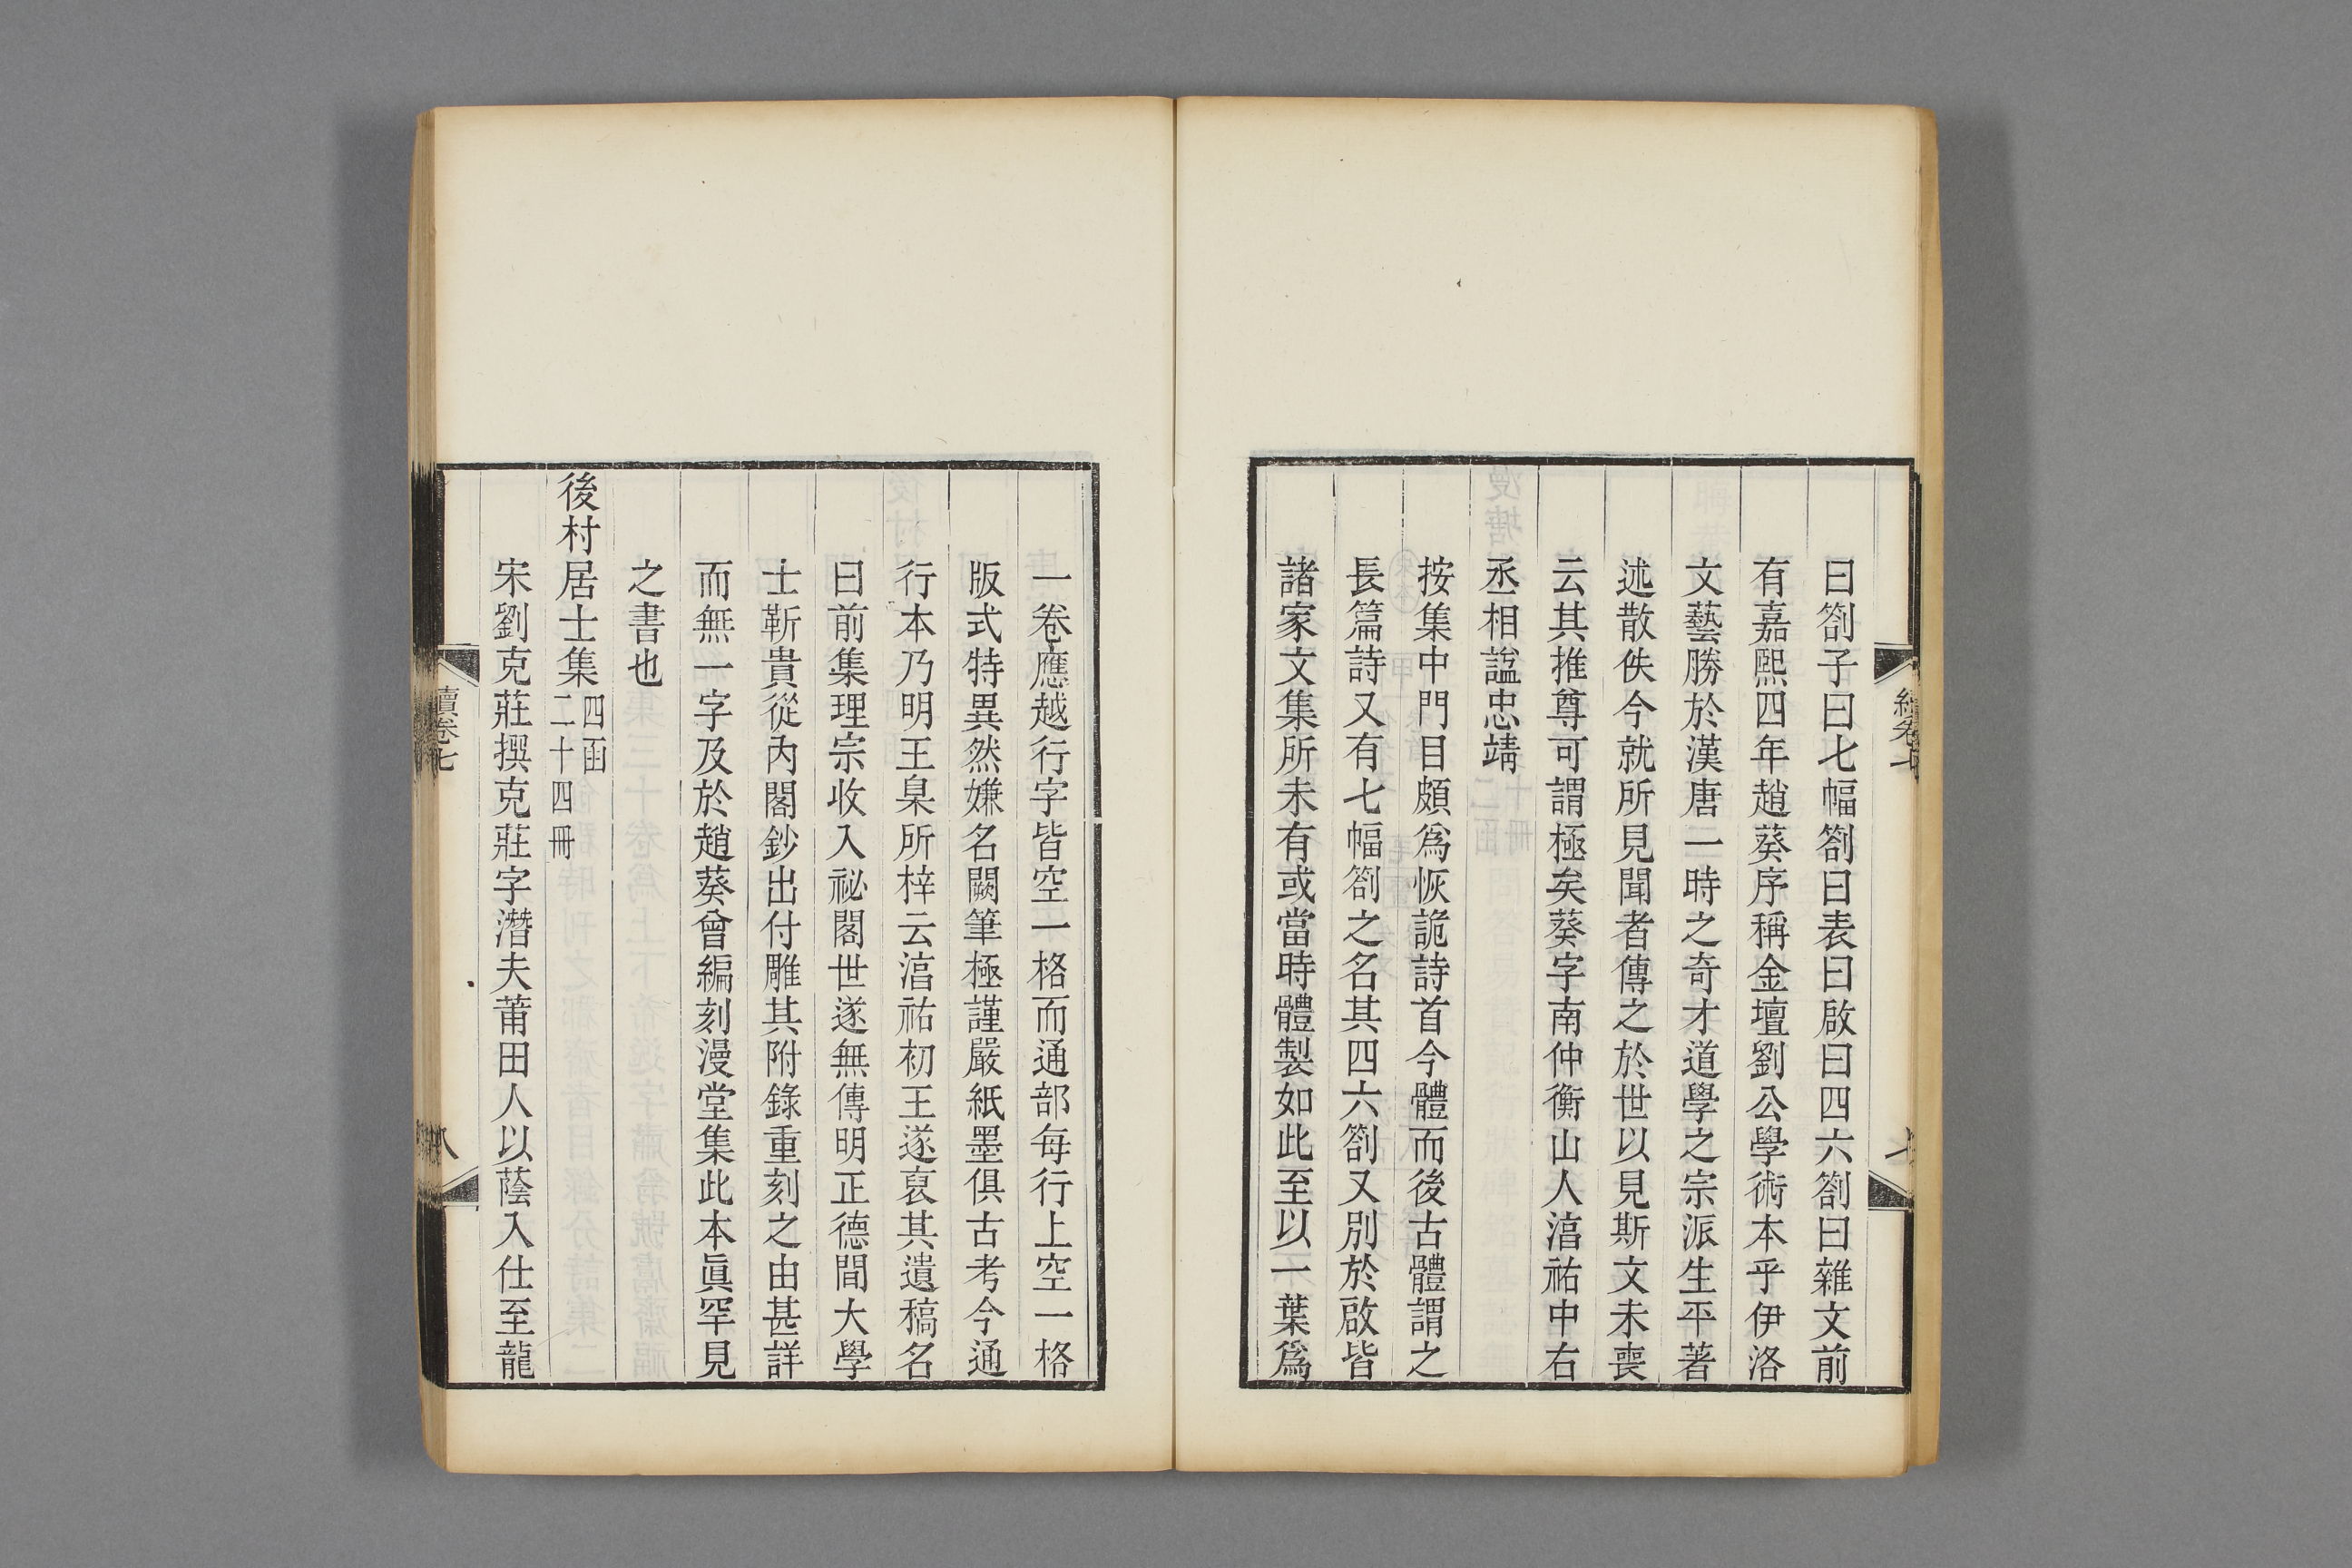 曰劄子曰七幅劄曰表曰啟曰四六劄曰雜文前
有嘉熙四年趙葵序稱金壇劉公學術本乎伊洛
文藝勝於漢唐一時之奇才道學之宗派生平著
述散佚今就所見聞者傳之於世以見斯文未喪
云其推尊可謂極矣葵字南仲衡山人湻祐中右
丞相諡忠靖
按集中門目頗爲恢詭詩首今體而後古體謂之
長篇詩又有七幅劄之名其四六劄又別於啟皆
諸家文集所未有或當時體製如此至以一葉爲
一卷應越行字皆空一格而通部每行上空一格
版式特異然嫌名闕筆極謹嚴紙墨俱古考今通
行本乃明王臬所梓云湻祐初王遂裒其遺稿名
曰前集理宗收入祕閣世遂無傳明正德間大學
士靳貴從內閣鈔出付雕其附錄重刻之由甚詳
而無一字及於趙葵曾編刻漫堂集此本眞罕見
之書也
後村居士集四函
二十四冊
宋劉克莊撰克莊字潛夫莆田人以蔭入仕至龍
續卷七
八